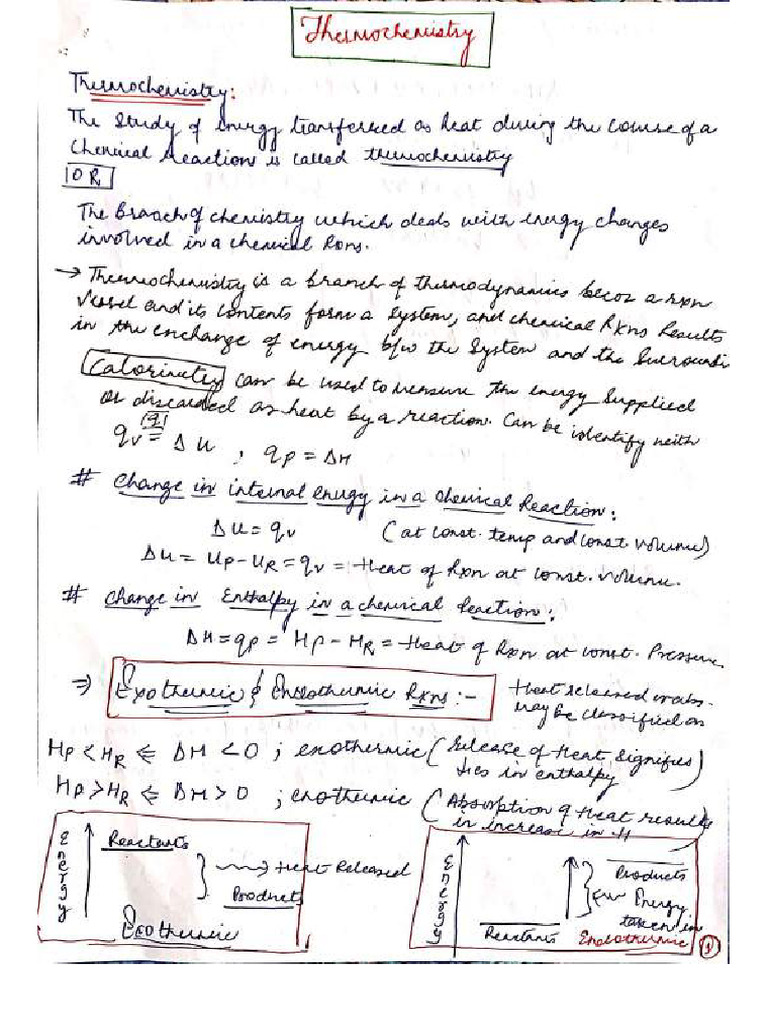 Thermochemistry
Thermochemistry:
The study of energy transferred as heat during the course of a
chemical reaction is called thermochemistry
OR
The Branch of chemistry which deals with energy changes
involved in a chemical Rxns.
→ Thermochemistry is a branch of thermodynamics becoz a rxn
vessel and its contents form a system, and chemical Rxns Results
in the exchange of energy b/w the system and the Surroundi
Calorimetry can be used to measure the energy supplied
or discarded as heat by a reaction. Can be identify with
|q|
qv = ΔU , qp = ΔH
# Change in internal energy in a chemical Reaction:
ΔU = qv (at const. temp and const volume)
ΔU = UP - UR = qv = Heat of Rxn at const. volume.
# Change in Enthalpy in a chemical Reaction:
ΔH = qp = HP - HR = Heat of Rxn at const. Pressure.
⇒ Exothermic & Endothermic Rxns :- Heat released or abs.
may be classified as
HP < HR ⇐ ΔH < 0 ; exothermic (Release of Heat, signifies
in enthalpy)
HP > HR ⇐ ΔH > 0 ; enothermic (Absorption of Heat results
in increase in H
Energy
Reactants
Heat Released
Products
Exothermic
Energy
Products
Energy
taken in
Reactants Endothermic
1